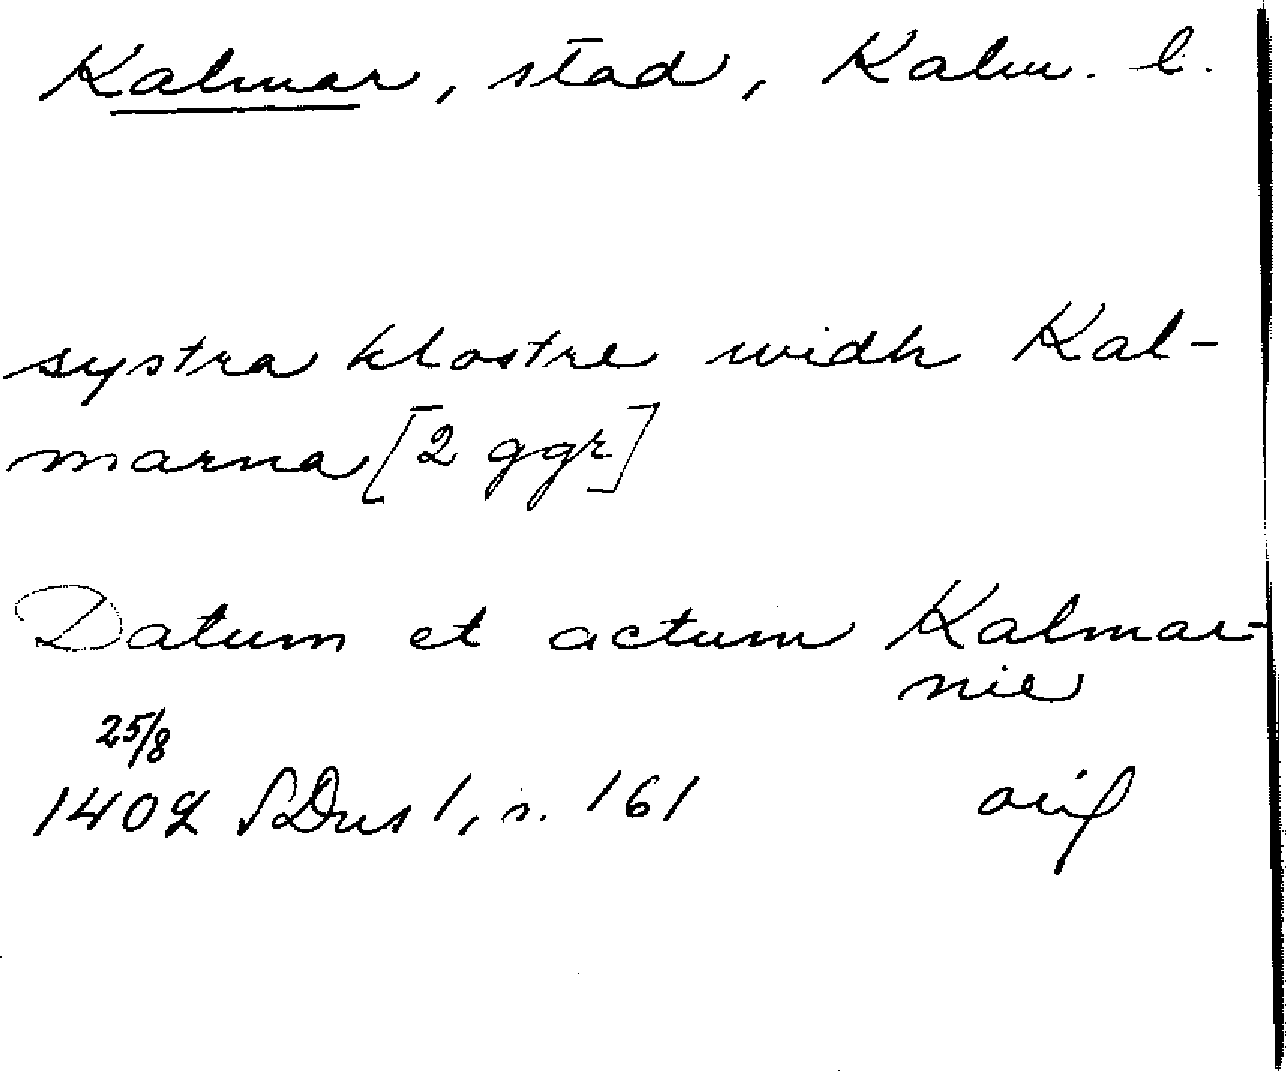 Kalmar, stad, Kalm. l.
systra klostre widh Kal-
marna [2 ggr]
Datum et actum Kalmar-
nie
25/8
1402 SDns 1, s. 161